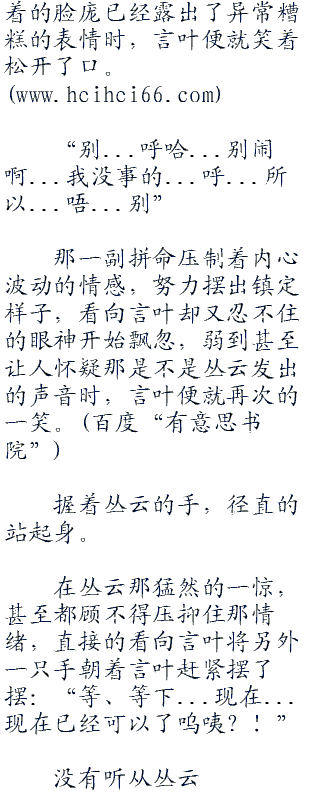 着的脸庞已经露出了异常糟
糕的表情时，言叶便就笑着
松开了口。
(www.hcihci66.com)
“别...呼哈...别闹
啊...我没事的...呼...所
以...唔...别”
那一副拼命压制着内心
波动的情感，努力摆出镇定
样子，看向言叶却又忍不住
的眼神开始飘忽，弱到甚至
让人怀疑那是不是丛云发出
的声音时，言叶便就再次的
一笑。(百度“有意思书
院”)
握着丛云的手，径直的
站起身。
在丛云那猛然的一惊，
甚至都顾不得压抑住那情
绪，直接的看向言叶将另外
一只手朝着言叶赶紧摆了
摆：“等、等下...现在...
现在已经可以了呜咦？！”
没有听从丛云